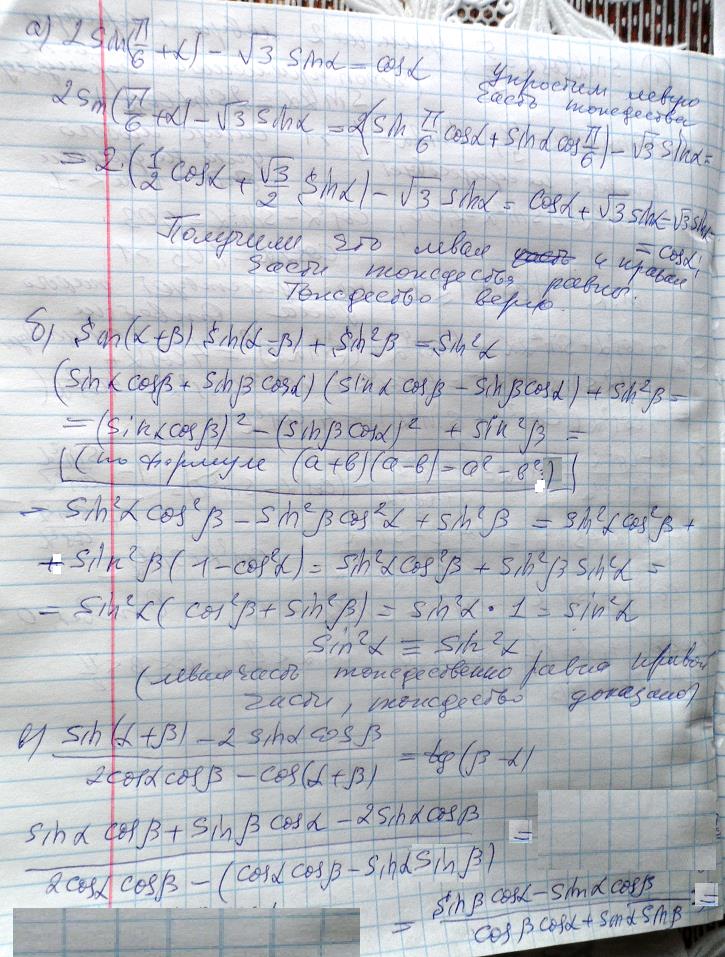 а) 2 sin(π/6 + α) - √3 sin α = cos α
Упростим левую
часть тождества
2 sin(π/6 + α) - √3 sin α = 2(sin π/6 cos α + sin α cos π/6) - √3 sin α =
= 2·(1/2 cos α + √3/2 sin α) - √3 sin α = cos α + √3 sin α - √3 sin α
= cos α,
Получили, что левая и правая
части тождества равны.
Тождество верно.
б) sin(α+β) sin(α-β) + sin²β = sin²α
(sin α cos β + sin β cos α)(sin α cos β - sin β cos α) + sin²β =
= (sin α cos β)² - (sin β cos α)² + sin²β =
[(по формуле (a+b)(a-b) = a² - b²)]
= sin²α cos²β - sin²β cos²α + sin²β = sin²α cos²β +
+ sin²β (1 - cos²α) = sin²α cos²β + sin²β sin²α =
= sin²α (cos²β + sin²β) = sin²α · 1 = sin²α
sin²α ≡ sin²α
(левая часть тождественно равна правой
части, тождество доказано)
в) (sin(α+β) - 2 sin α cos β)/(2 cos α cos β - cos(α+β)) = tg(β-α)
(sin α cos β + sin β cos α - 2 sin α cos β)/(2 cos α cos β - (cos α cos β - sin α sin β)) =
= (sin β cos α - sin α cos β)/(cos β cos α + sin α sin β) =